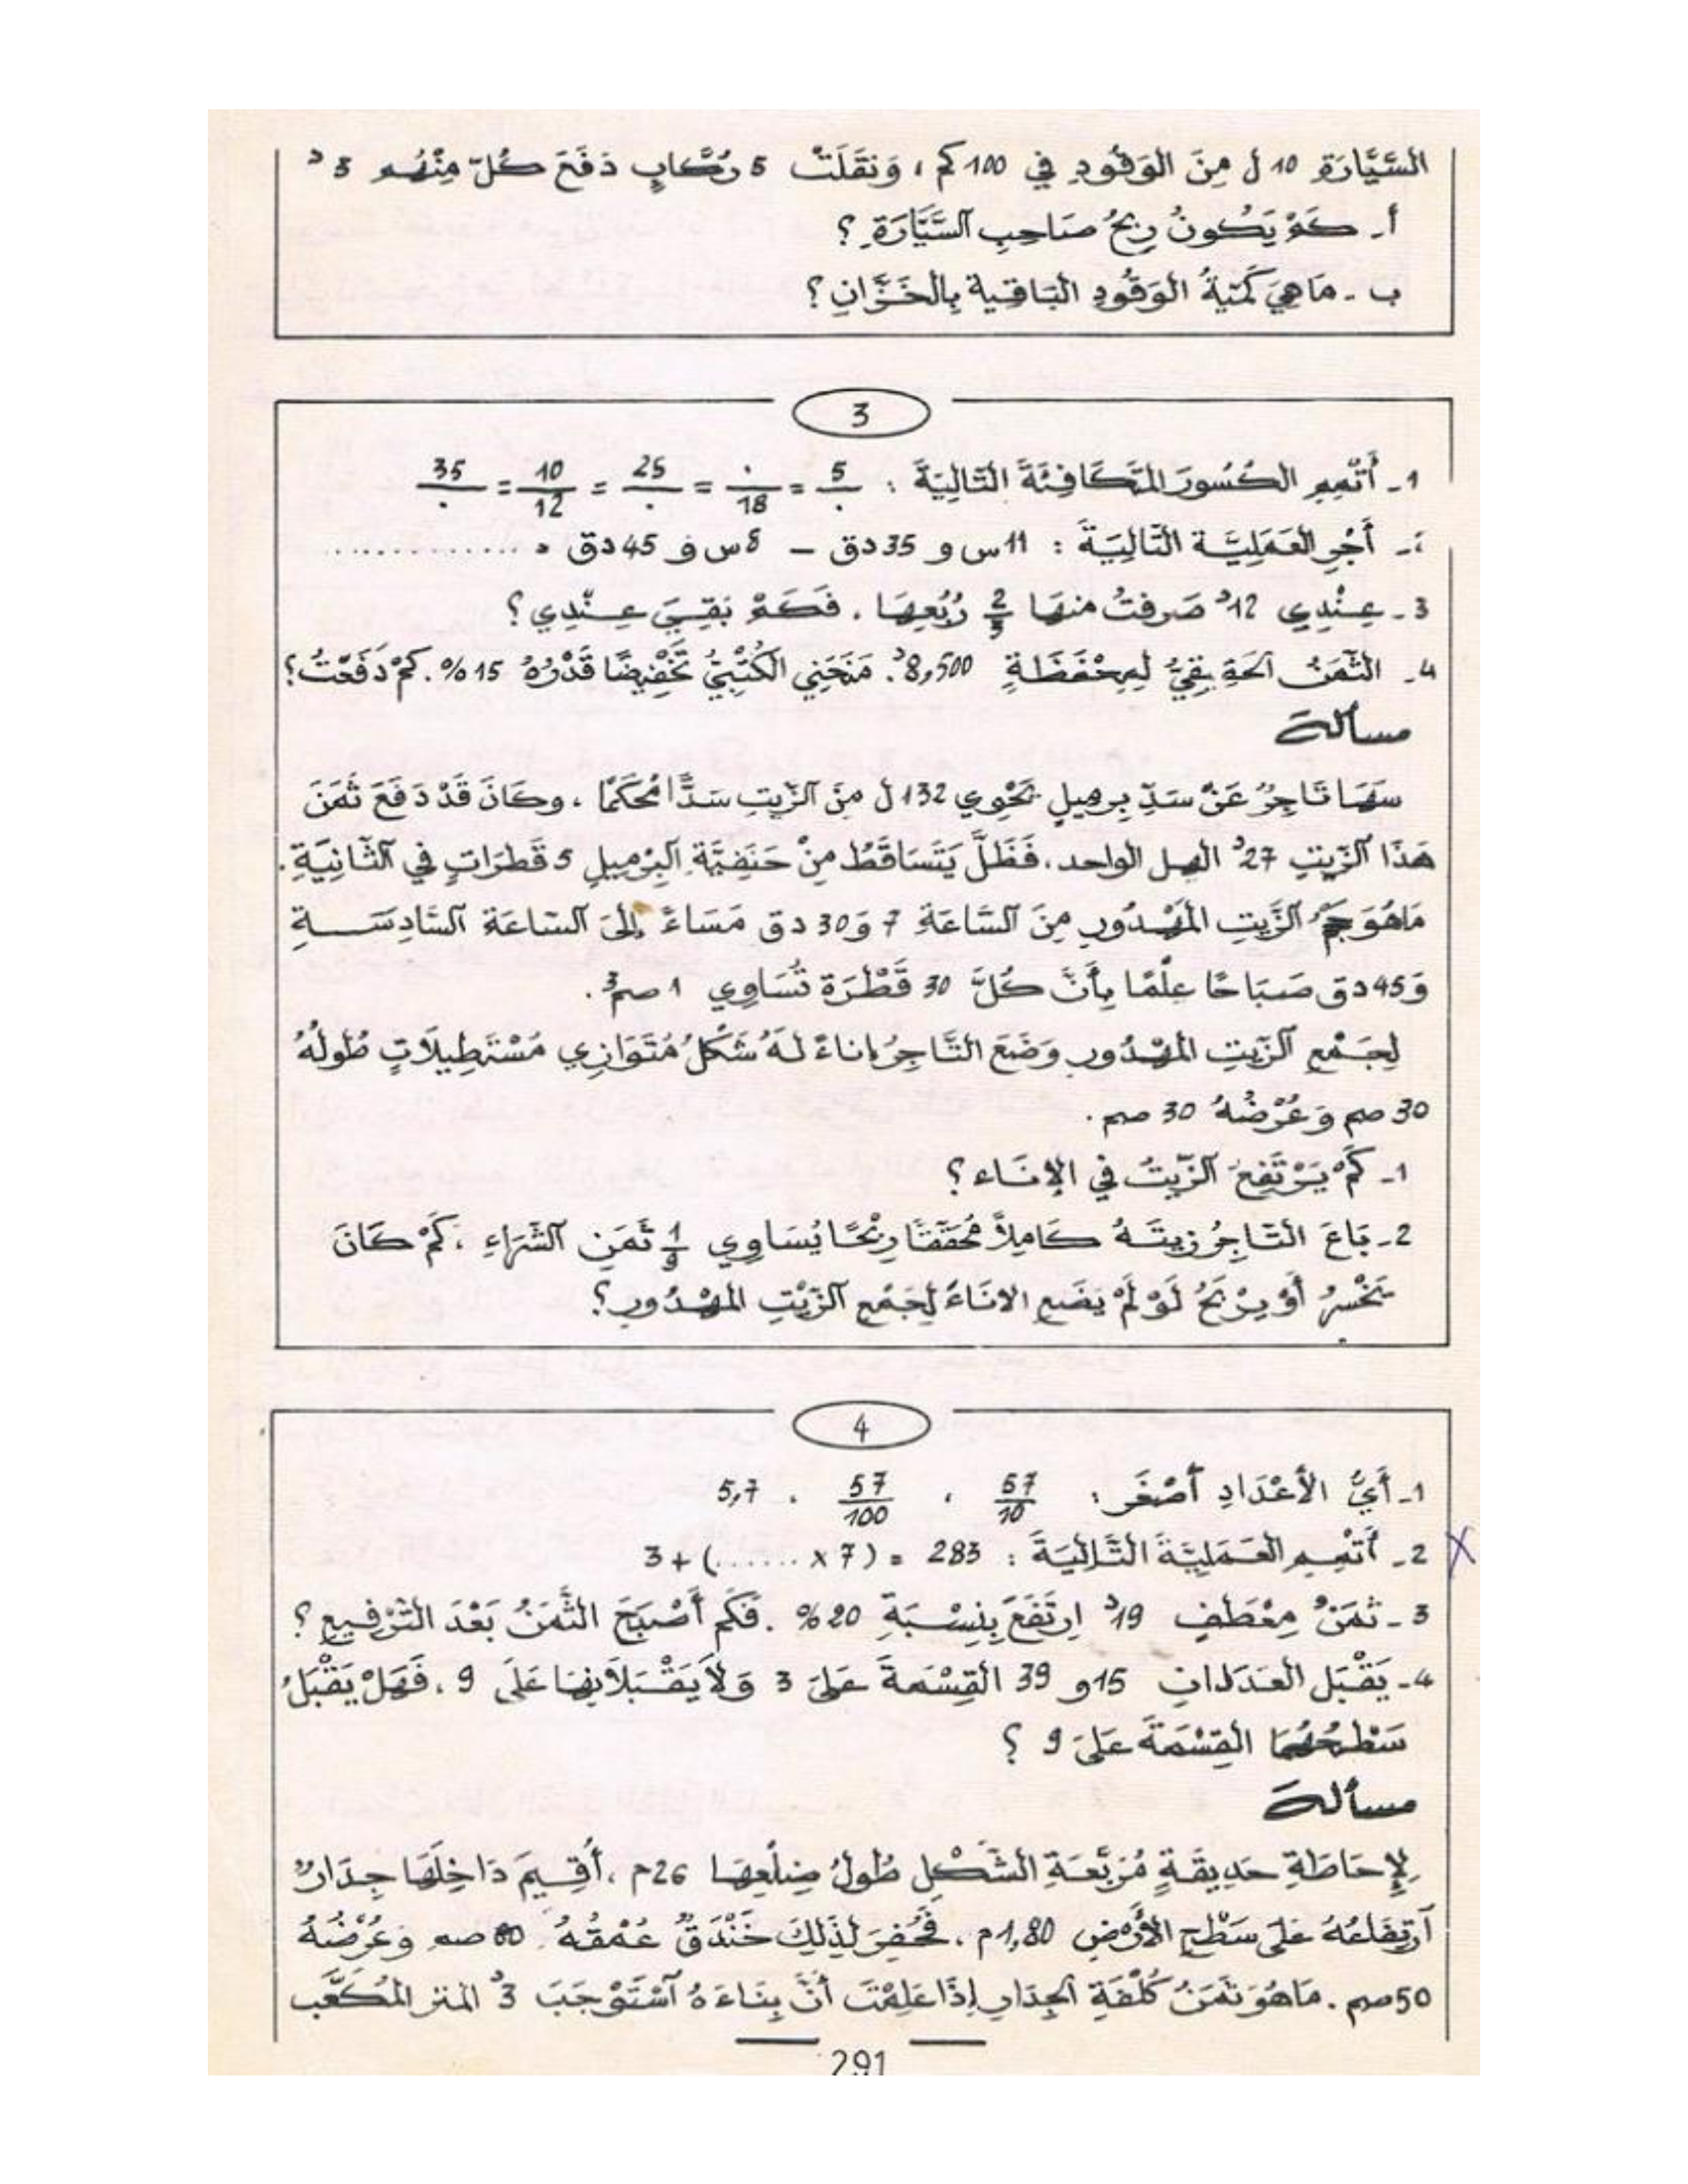 السَّيَّارَةِ 10 ل مِنَ الوَقُودِ فِي 100 كم ، وَنَقَلَتْ 5 رُكَّابٍ دَفَعَ كُلّ مِنْهُم 3 د
أ - كَمْ يَكُونُ رِبْحُ صَاحِبِ السَّيَّارَةِ ؟
ب - مَا هِيَ كَمِّيَةُ الوَقُودِ البَاقية بِالخَزَّانِ ؟
3
1 - أَتْمِمِ الكُسُورَ المُتَكَافِئَةَ التَّالِيَةَ : 5/. = ./18 = 25/. = 10/12 = 35/.
- أَجْرِ العَمَلِيَّة التَّالِيَةَ : 11 س و 35 دق - 8 س و 45 دق = ..............
3 - عِنْدِي 12 د صَرفتُ منهَا 2/3 رُبُعِهَا . فَكَمْ بَقِيَ عِنْدِي ؟
4 - الثَّمَنُ الحَقِيقِيُّ لِمِحْفَظَةٍ 8,500 د . مَنَحَنِي الكُتُبِيُّ تَخْفِيضًا قَدْرُهُ 15 % . كَمْ دَفَعْتُ ؟
مسألة
سَهَا تَاجِرُ عَنْ سَدِّ بِرميلٍ يَحْوِي 132 ل مِنَ الزَّيتِ سَدًّا مُحْكَمًا ، وكَانَ قَدْ دَفَعَ ثَمَنَ
هَذَا الزَّيتِ 27 د الهل الواحد . فَظَلَّ يَتَسَاقَطُ مِنْ حَنَفِيَّةِ البِرْمِيلِ 5 قَطَرَاتٍ فِي الثَّانِيَةِ .
مَا هُوَ حَجْمُ الزَّيتِ المَهْدُورِ مِنَ السَّاعَةِ 7 وَ 30 دق مَسَاءً إِلَى السَّاعَةِ السَّادِسَةِ
وَ 45 دق صَبَاحًا عِلْمًا بِأَنَّ كُلَّ 30 قَطْرَة تُسَاوِي 1 صم³ .
لِجَمْعِ الزَّيتِ المَهْدُورِ وَضَعَ التَّاجِرُ إِناءً لَهُ شَكْلُ مُتَوَازِي مُسْتَطِيلَاتٍ طُولُهُ
30 صم وَعُرْضُهُ 30 صم .
1 - كَمْ يَرْتَفِعُ الزَّيتُ فِي الإِنَاء ؟
2 - بَاعَ التَّاجِرُ زيتَهُ كَامِلاً مُحَقِّقًا رِبْحًا يُسَاوِي 1/9 ثَمَنِ الشِّرَاءِ ، كَمْ كَانَ
يَخْسِرُ أَوْ يرْبَحُ لَوْ لَمْ يَضَعِ الانَاءَ لِجَمْعِ الزَّيْتِ المَهْدُورِ ؟
4
1 - أَيُّ الأَعْدَادِ أَصْغَر : 57/10 ، 57/100 ، 5,7
2 - أَتْمِمِ العَمَلِيَّةَ التَّالِيَةَ : 283 = (7 × ......) + 3
3 - ثَمَنُ مِعْطَفٍ 19 د اِرتَفَعَ بِنِسْبَةِ 20 % . فَكَم أَصْبَحَ الثَّمَنُ بَعْدَ التَّرْفيعِ ؟
4 - يَقْبَل العَدَدَانِ 15 و 39 القِسْمَةَ عَلَى 3 وَلَا يَقْبَلَانِهَا عَلَى 9 ، فَهَلْ يَقْبَلُ
سَطْحُهُمَا القِسْمَةَ عَلَى 9 ؟
مسألة
لِإِحَاطَةِ حَدِيقَةٍ مُرَبَّعَةِ الشَّكْلِ طُولُ ضِلْعِهَا 26 م ، أُقِيمَ دَاخِلَهَا جِدَارٌ
ارتِفَاعُهُ عَلَى سَطْحِ الأَرْضِ 1,80 م ، فَحُفِرَ لِذَلِكَ خَنْدَقٌ عُمْقُهُ 80 صم وَعُرْضُهُ
50 صم . مَا هُوَ ثَمَنُ كُلْفَةِ الجِدَارِ إِذَا عَلِمْتَ أَنَّ بِنَاءَهُ اسْتَوْجَبَ 3 د المتر المُكَعَّب
291